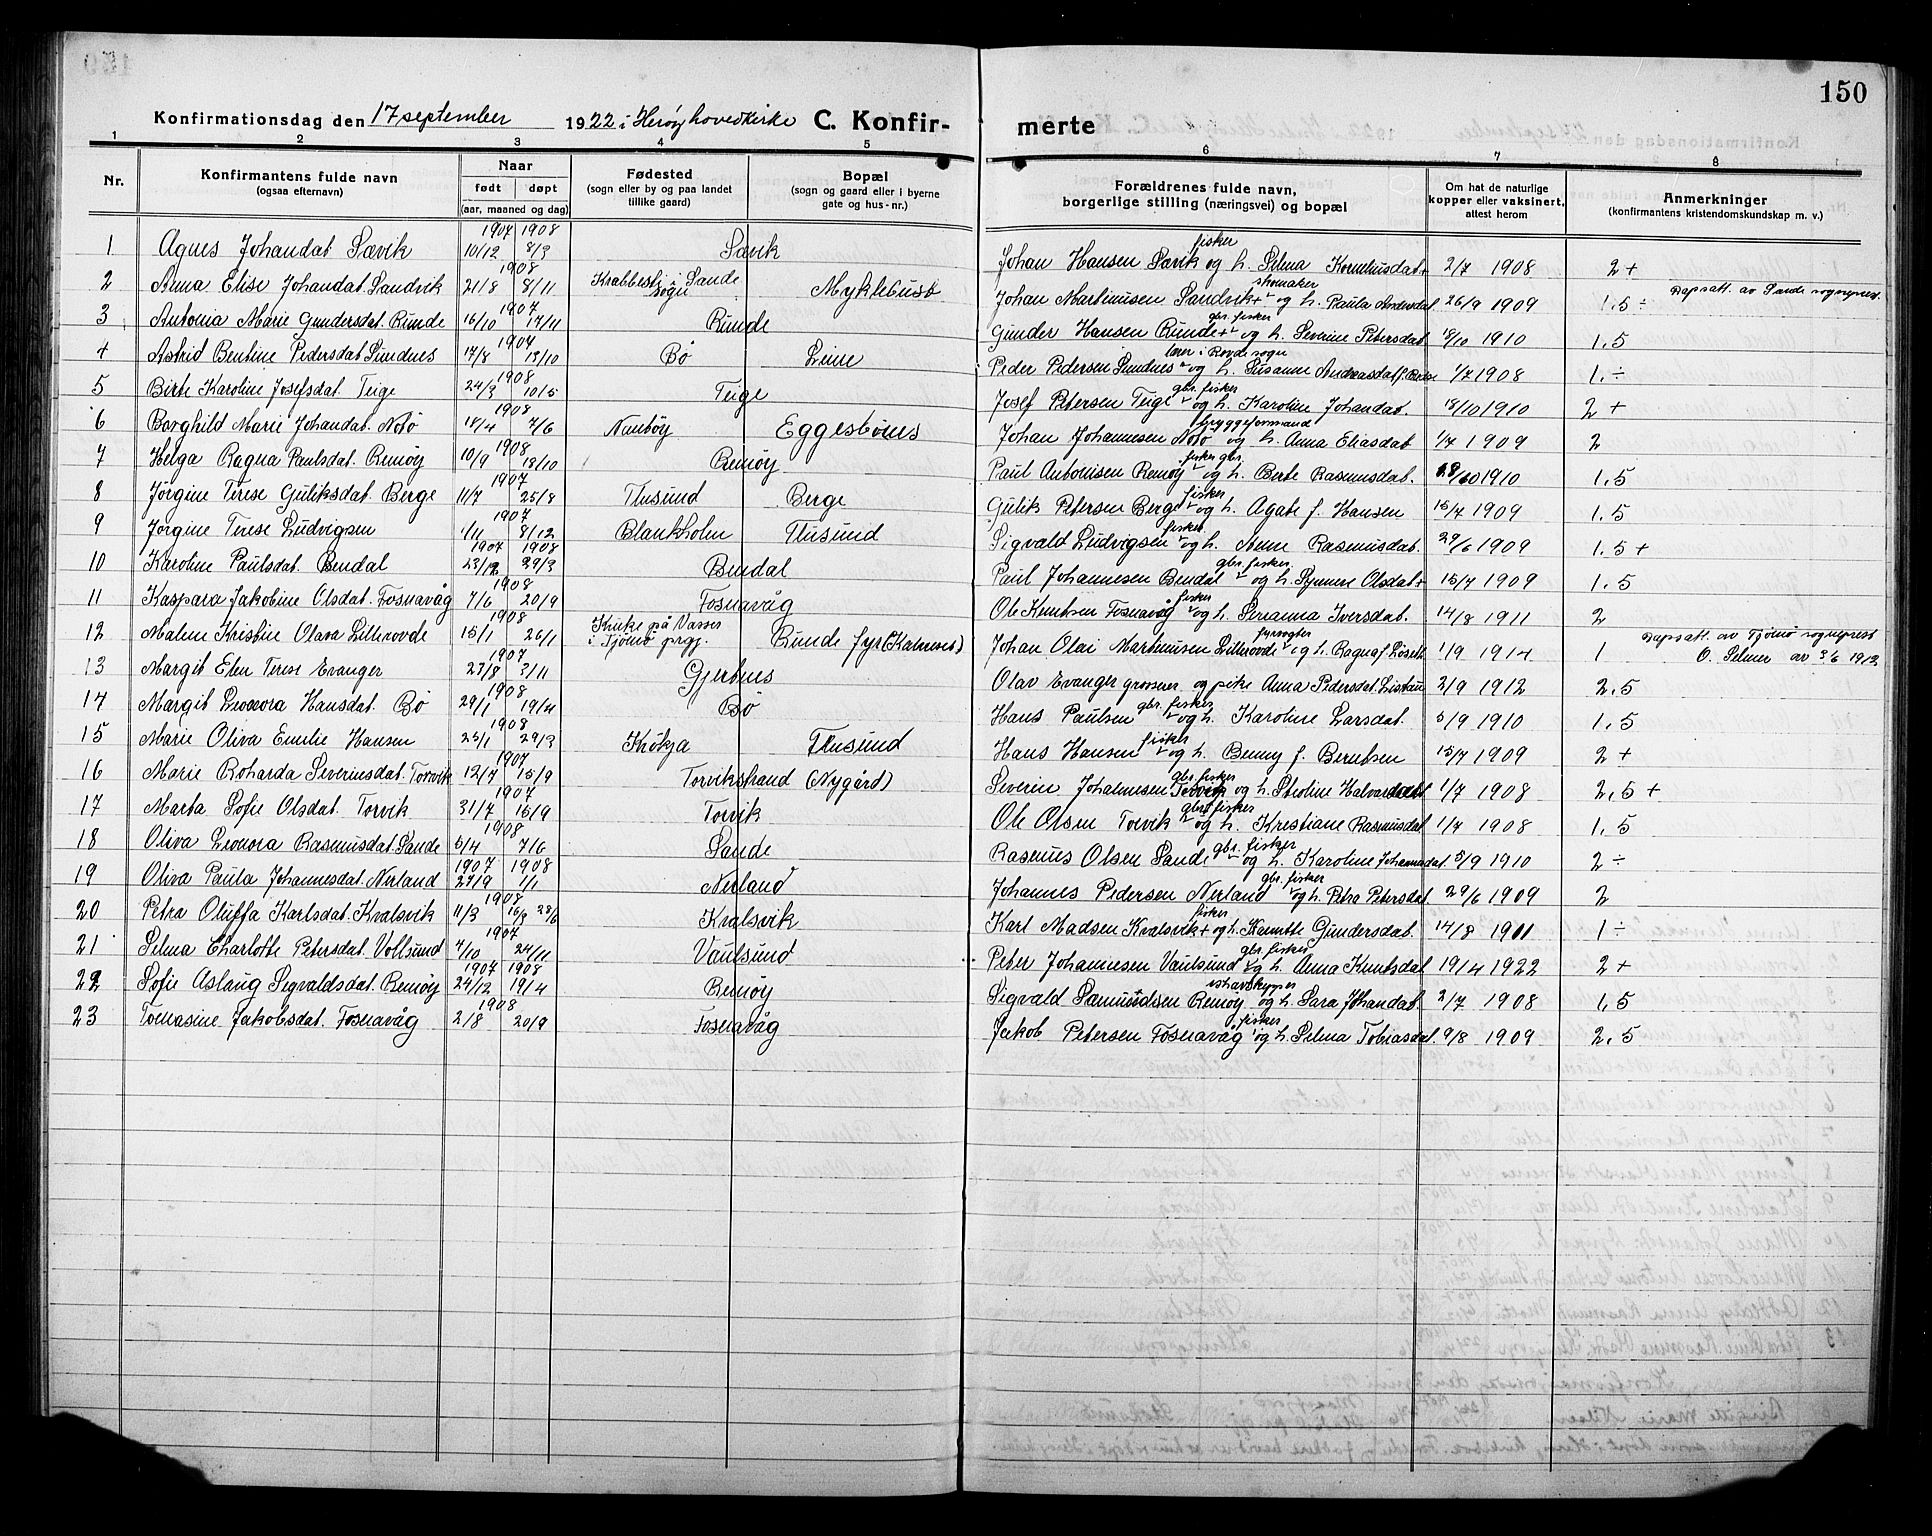 150
Konfirmationsdag den 17 september 1922 i Herøy hovedkirke C. Konfir- merte
1 2 3 4 5 6 7 8
Nr. Konfirmantens fulde navn (ogsaa efternavn) Naar født døpt (aar, maaned og dag) Fødested (sogn eller by og paa landet tillike gaard) Bopæl (sogn og gaard eller i byerne gate og hus-nr.) Forældrenes fulde navn, borgerlige stilling (næringsvei) og bopæl Om hat de naturlige kopper eller vaksinert, attest herom Anmerkninger (konfirmantens kristendomskundskap m. v.)
1 Agnes Johansdat Sævik 1907 10/12 1908 8/3 Sævik Johan Hansen Sævik fisker og h. Selma Korneliusdat 2/7 1908 2+
2 Anna Elise Johandat. Sandvik 1908 21/8 8/11 Krabbest. i Sande sogn Myklebust Johan Martinusen Sandvik skomaker og h. Paula Andersdat 26/9 1909 1.5 ÷ Dapsatt. av Sande sogneprest.
3 Antonia Marie Gundersdat. Runde 1907 16/10 17/11 Runde Gunder Hansen Runde gbr. fisker og h. Severine Petersdat 18/10 1910 1.5
4 Astrid Bentine Pedersdat Sundnes 1907 17/8 13/10 Bø Leine Peder Pedersen Sundnes lærer i Rovde sogn og h. Susanne Andreasdat 1/7 1908 1.÷
5 Birte Karoline Josefsdat. Teige 1908 24/3 10/5 Teige Josef Petersen Teige gbr. fisker og h. Karoline Johandat. 18/10 1910 2+
6 Borghild Marie Johandat. Notø 1908 14/4 7/6 Nautøy Eggesbønes Johan Johannesen Notø bryggeformand og h. Anna Eliasdat 1/7 1909 2
7 Helga Ragna Paulsdat. Remøy 10/9 13/10 Remøy Paul Antonisen Remøy fisker gbr. og h. Berte Rasmusdat. 1910 1.5
8 Jørgine Terese Guliksdat. Berge 1907 11/7 25/8 Flusund Berge Gulik Petersen Berge fisker og h. Agate f. Hansen 15/7 1909 1.5
9 Jørgine Terese Ludvigsen 1907 1/11 8/12 Blankholm Flusund Sigvald Ludvigsen fisker og h. Anne Rasmusdat. 29/6 1909 1.5+
10 Karoline Paulsdat. Bendal 1907 23/12 1908 29/3 Bendal Paul Johannesen Bendal gbr. fisker og h. Synnøve Olsdat 15/7 1909 1.5
11 Kaspara Jakobine Olsdat. Fosnavåg 1908 7/6 20/9 Fosnavåg Ole Knutsen Fosnavåg fisker og h. Serianna Iversdat. 14/8 1911 2
12 Malene Kristine Olava Lillerovde 1908 15/1 26/1 på Vasser i Tjømø prgj. Runde fyr (Kalneset) Johan Olai Martinusen Lillerovde fyrvogter og h. Ragna f. 1/9 1914 1 Dapsatt. av Tjømø sogneprest O. Selmer av 3/6 1912
13 Margit Elen Terese Evanger 1907 27/8 3/11 Gjertnes Olav Evanger grosserer og pike Anna Pedersdat. 2/9 1912 2.5
14 Margit Leonora Hansdat. Bø 1908 29/1 19/4 Bø Hans Paulsen gbr. fisker og h. Karoline Larsdat. 5/9 1910 1.5
15 Marie Oliva Emilie Hansen 1908 23/1 29/3 Krøkja Flusund Hans Hansen fisker og h. Benny f. Berntsen 15/7 1909 2+
16 Marie Roharda Severinsdat. Torvik 1907 12/7 15/9 Torvikstrand (Nygård) Severin Johannesen Torvik gbr. fisker og h. Steoline Halvardsdat 1/7 1908 2,5+
17 Marta Sofie Olsdat. Torvik 1907 31/7 15/9 Torvik Ole Olsen Torvik gbr. fisker og h. Kristiane Rasmusdat 1/7 1908 1.5
18 Oliva Leonora Rasmusdat. Sande 1908 5/4 7/6 Sande Rasmus Olsen Sande gbr. fisker og h. Karoline Johannesdat 5/9 1910 2÷
19 Oliva Paula Johannesdat. Nerland 1907 27/9 1908 1/1 Nerland Johannes Pedersen Nerland gbr. fisker og h. Petra Petersdat 29/6 1909 2
20 Petra Oluffa Karlsdat. Kvalsvik 1908 11/3 Kvalsvik Karl Madsen Kvalsvik fisker og h. Gundersdat. 14/8 1911 1÷
21 Selma Charlotte Petersdat. Vollsund 1907 4/10 24/11 Vaulsund Peter Johannesen Vaulsund gbr. fisker og h. Anna Knutsdat 19/4 1922 2+
22 Sofie Aslaug Sigvaldsdat. Remøy 1907 24/12 1908 19/4 Remøy Sigvald Samundsen Remøy ishavsskipper og h. Sara Johandat. 2/7 1908 1,5
23 Tomasine Jakobsdat. Fosnavåg 1908 2/8 20/9 Fosnavåg Jakob Petersen Fosnavåg fisker og h. Selma Tobiasdat 9/8 1909 2.5